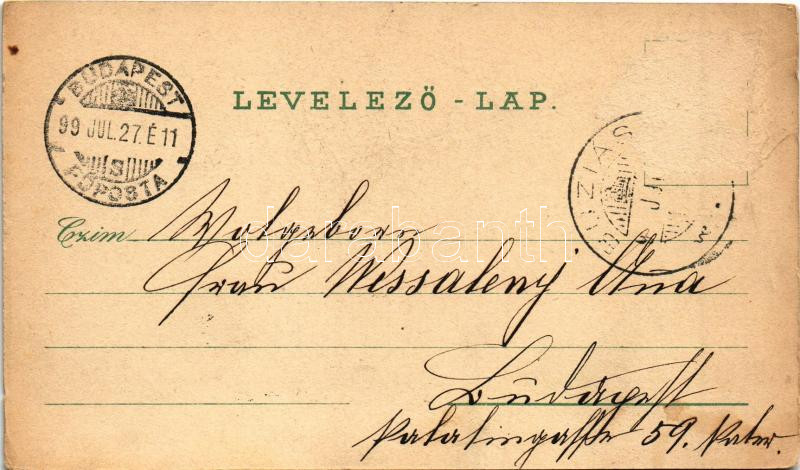 BUDAPEST
99 JUL. 27. É 11
S
FŐPOSTA
LEVELEZŐ - LAP.
BUZIÁS
Czim Wolgeborn
Frau Wessaleny Ana
Budapest
Palatingasse 59. Pater.
darabanth